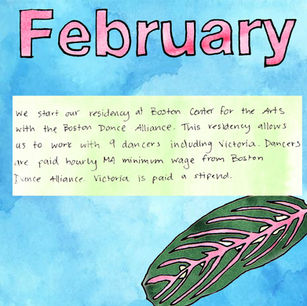 February
We start our residency at Boston Center for the Arts
with the Boston Dance Alliance. This residency allows
us to work with 9 dancers including Victoria. Dancers
are paid hourly MA minimum wage from Boston
Dance Alliance. Victoria is paid a stipend.